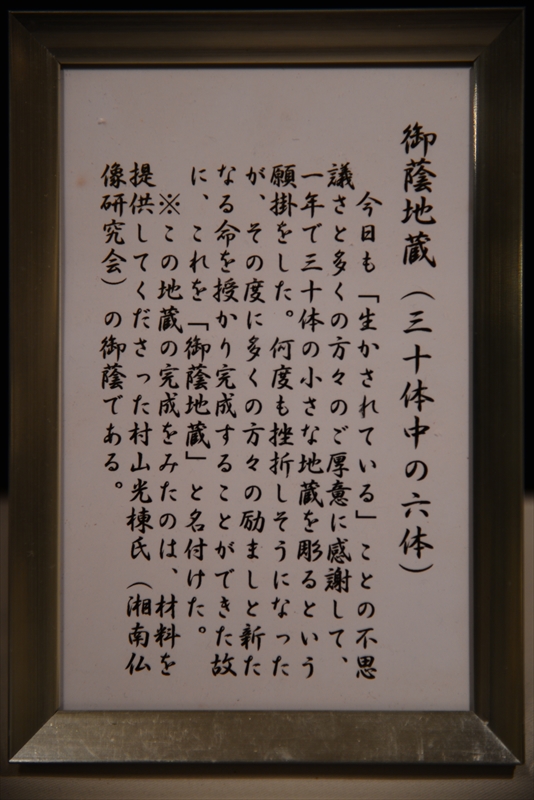 御蔭地蔵(三十体中の六体)
今日も「生かされている」ことの不思
議さと多くの方々のご厚意に感謝して、
一年で三十体の小さな地蔵を彫るという
願掛をした。何度も挫折しそうになった
が、その度に多くの方々の励ましと新た
なる命を授かり完成することができた故
に、これを「御蔭地蔵」と名付けた。
※この地蔵の完成をみたのは、材料を
提供してくださった村山光棟氏(湘南仏
像研究会)の御蔭である。